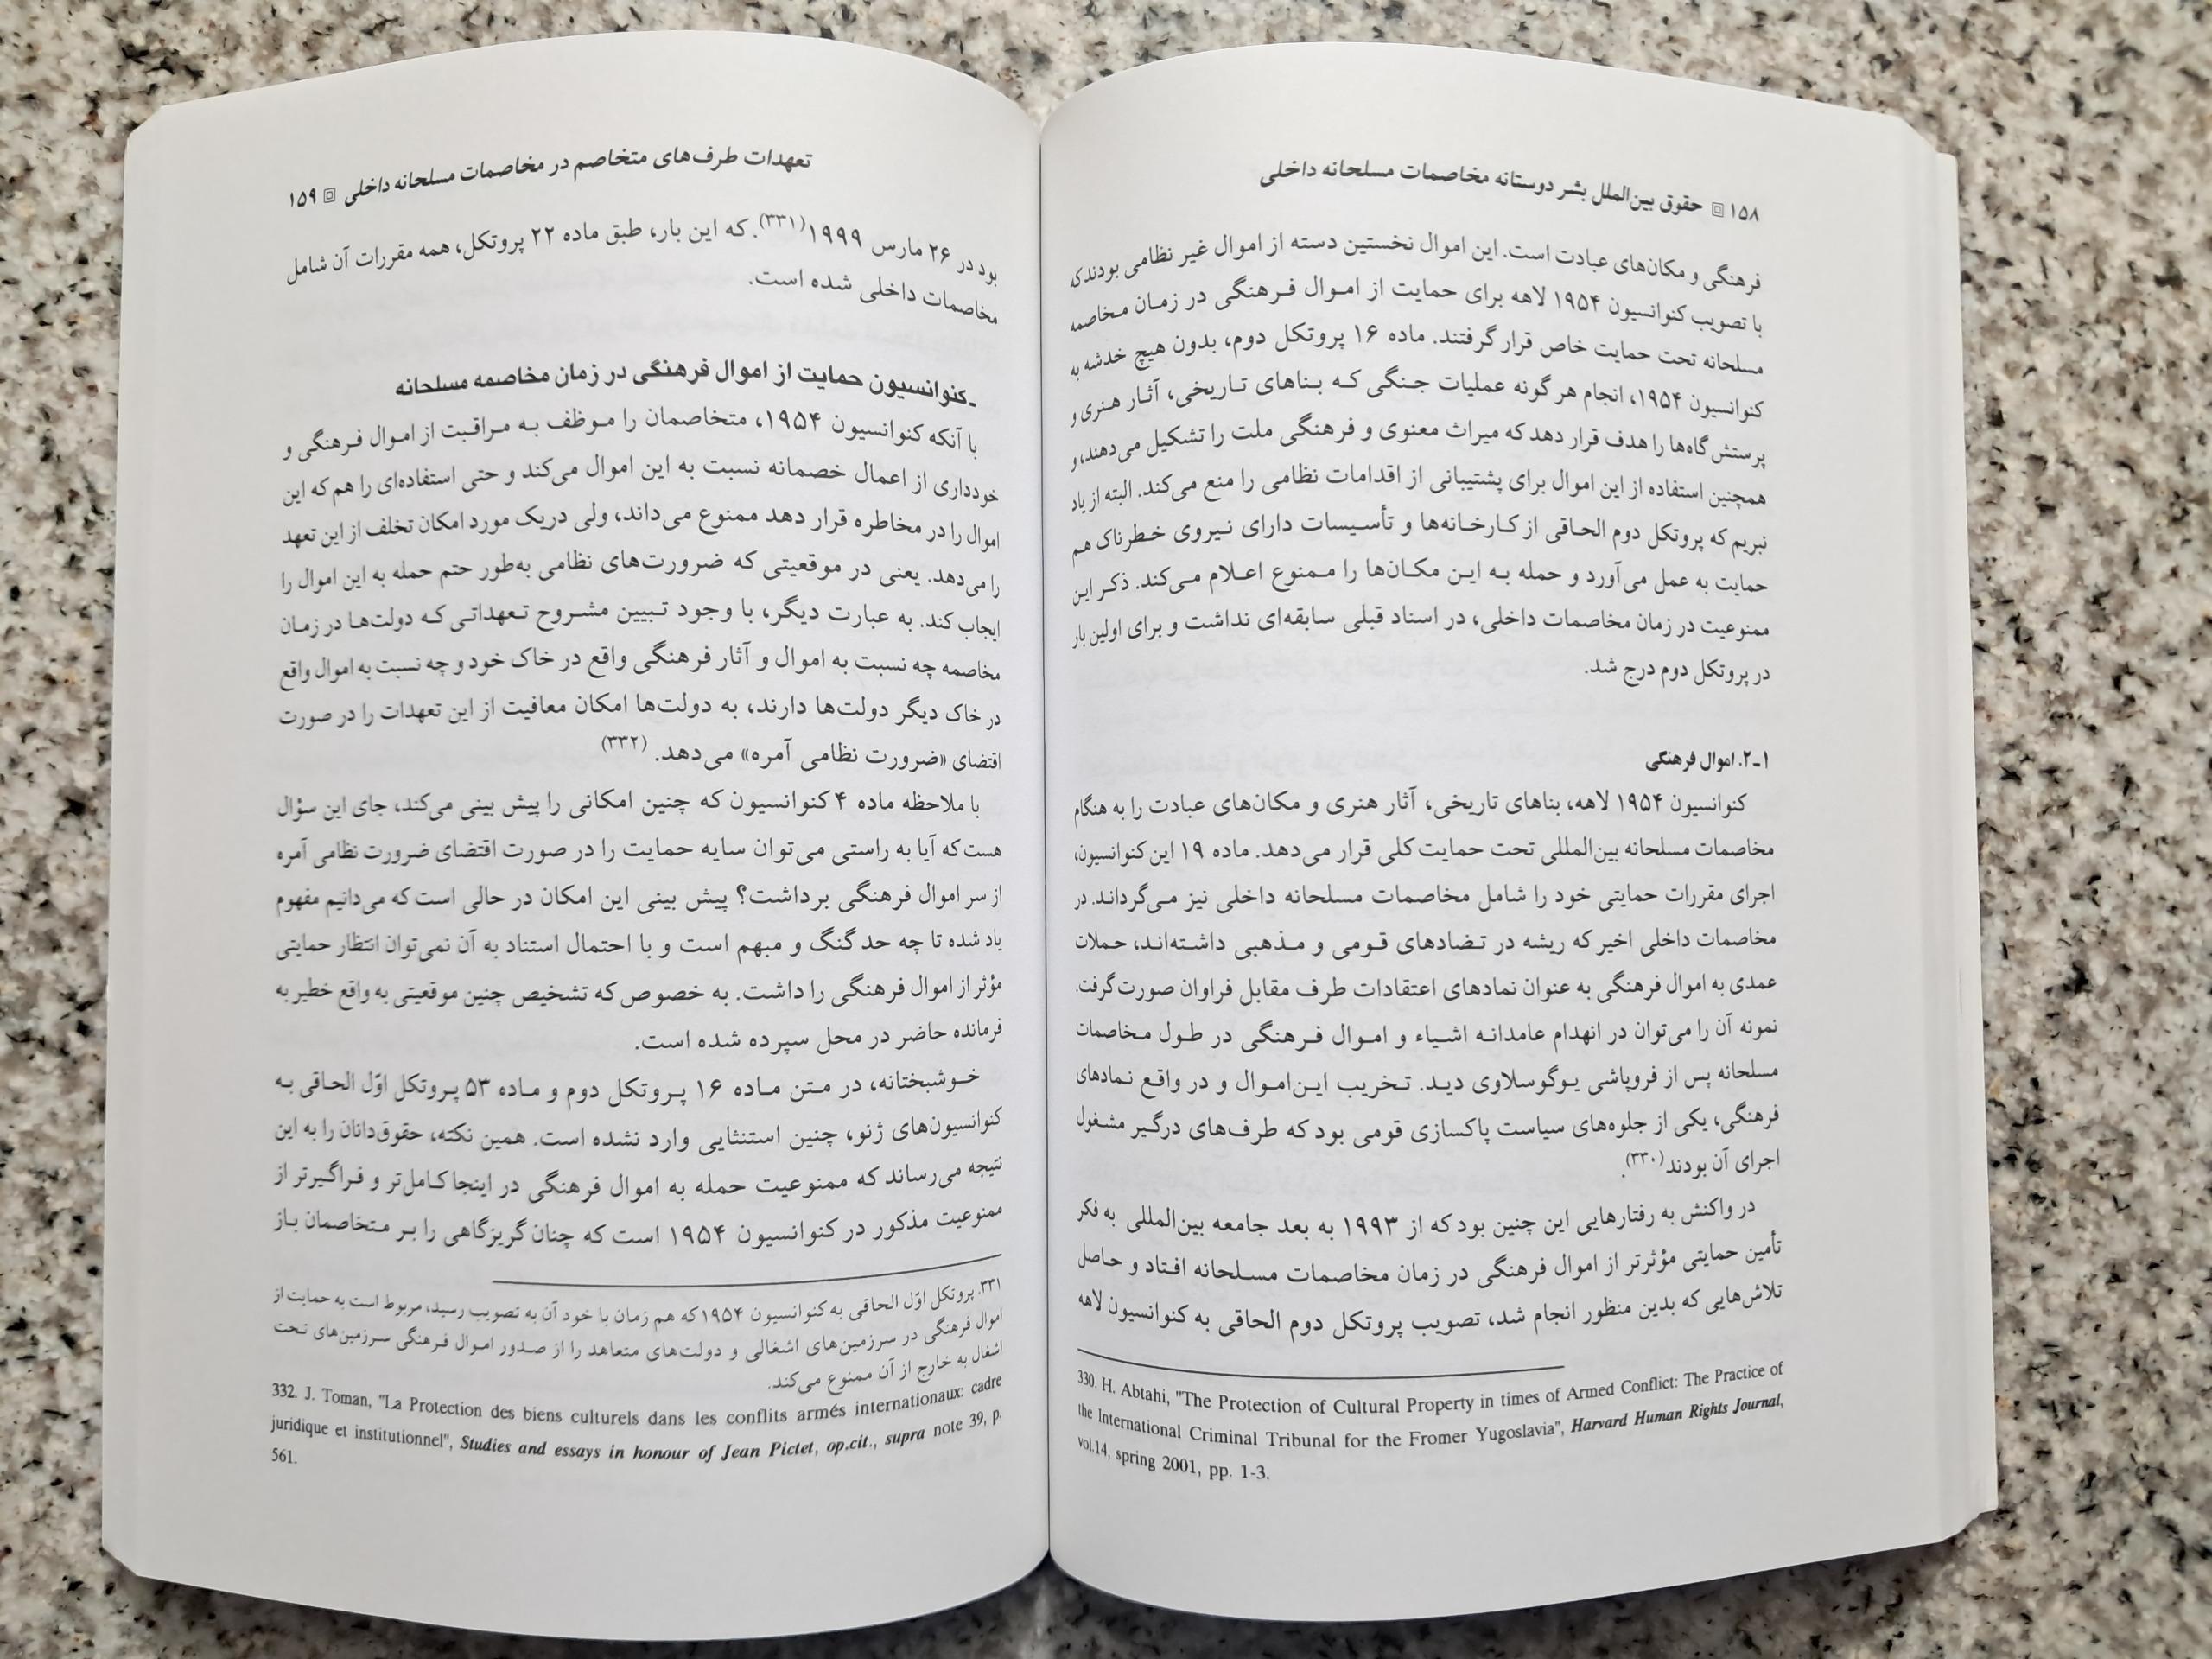 ۱۵۸ حقوق بین‌الملل بشر دوستانه مخاصمات مسلحانه داخلی
فرهنگی و مکان‌های عبادت است. این اموال نخستین دسته از اموال غیر نظامی بودند که
با تصویب کنوانسیون ۱۹۵۴ لاهه برای حمایت از اموال فرهنگی در زمان مخاصمه
مسلحانه تحت حمایت خاص قرار گرفتند. ماده ۱۶ پروتکل دوم، بدون هیچ خدشه به
کنوانسیون ۱۹۵۴، انجام هر گونه عملیات جنگی که بناهای تاریخی، آثار هنری و
پرستش گاه‌ها را هدف قرار دهد که میراث معنوی و فرهنگی ملت را تشکیل می‌دهند، و
همچنین استفاده از این اموال برای پشتیبانی از اقدامات نظامی را منع می‌کند. البته از یاد
نبریم که پروتکل دوم الحاقی از کارخانه‌ها و تأسیسات دارای نیروی خطرناک هم
حمایت به عمل می‌آورد و حمله به این مکان‌ها را ممنوع اعلام می‌کند. ذکر این
ممنوعیت در زمان مخاصمات داخلی، در اسناد قبلی سابقه‌ای نداشت و برای اولین بار
در پروتکل دوم درج شد.
۱ـ۲. اموال فرهنگی
کنوانسیون ۱۹۵۴ لاهه، بناهای تاریخی، آثار هنری و مکان‌های عبادت را به هنگام
مخاصمات مسلحانه بین‌المللی تحت حمایت کلی قرار می‌دهد. ماده ۱۹ این کنوانسیون،
اجرای مقررات حمایتی خود را شامل مخاصمات مسلحانه داخلی نیز می‌گرداند. در
مخاصمات داخلی اخیر که ریشه در تضادهای قومی و مذهبی داشته‌اند، حملات
عمدی به اموال فرهنگی به عنوان نمادهای اعتقادات طرف مقابل فراوان صورت گرفت.
نمونه آن را می‌توان در انهدام عامدانه اشیاء و اموال فرهنگی در طول مخاصمات
مسلحانه پس از فروپاشی یوگوسلاوی دید. تخریب این‌اموال و در واقع نمادهای
فرهنگی، یکی از جلوه‌های سیاست پاکسازی قومی بود که طرف‌های درگیر مشغول
اجرای آن بودند(۳۳۰).
در واکنش به رفتارهایی این چنین بود که از ۱۹۹۳ به بعد جامعه بین‌المللی به فکر
تأمین حمایتی مؤثرتر از اموال فرهنگی در زمان مخاصمات مسلحانه افتاد و حاصل
تلاش‌هایی که بدین منظور انجام شد، تصویب پروتکل دوم الحاقی به کنوانسیون لاهه
330. H. Abtahi, "The Protection of Cultural Property in times of Armed Conflict: The Practice of
the International Criminal Tribunal for the Fromer Yugoslavia", Harvard Human Rights Journal,
vol.14, spring 2001, pp. 1-3.
تعهدات طرف‌های متخاصم در مخاصمات مسلحانه داخلی ۱۵۹
بود در ۲۶ مارس ۱۹۹۹(۳۳۱). که این بار، طبق ماده ۲۲ پروتکل، همه مقررات آن شامل
مخاصمات داخلی شده است.
ـ کنوانسیون حمایت از اموال فرهنگی در زمان مخاصمه مسلحانه
با آنکه کنوانسیون ۱۹۵۴، متخاصمان را موظف به مراقبت از اموال فرهنگی و
خودداری از اعمال خصمانه نسبت به این اموال می‌کند و حتی استفاده‌ای را هم که این
اموال را در مخاطره قرار دهد ممنوع می‌داند، ولی در یک مورد امکان تخلف از این تعهد
را می‌دهد. یعنی در موقعیتی که ضرورت‌های نظامی به‌طور حتم حمله به این اموال را
ایجاب کند. به عبارت دیگر، با وجود تبیین مشروح تعهداتی که دولت‌ها در زمان
مخاصمه چه نسبت به اموال و آثار فرهنگی واقع در خاک خود و چه نسبت به اموال واقع
در خاک دیگر دولت‌ها دارند، به دولت‌ها امکان معافیت از این تعهدات را در صورت
اقتضای «ضرورت نظامی آمره» می‌دهد. (۳۳۲)
با ملاحظه ماده ۴ کنوانسیون که چنین امکانی را پیش بینی می‌کند، جای این سؤال
هست که آیا به راستی می‌توان سایه حمایت را در صورت اقتضای ضرورت نظامی آمره
از سر اموال فرهنگی برداشت؟ پیش بینی این امکان در حالی است که می‌دانیم مفهوم
یاد شده تا چه حد گنگ و مبهم است و با احتمال استناد به آن نمی‌توان انتظار حمایتی
مؤثر از اموال فرهنگی را داشت. به خصوص که تشخیص چنین موقعیتی به واقع خطیر به
فرمانده حاضر در محل سپرده شده است.
خوشبختانه، در متن ماده ۱۶ پروتکل دوم و ماده ۵۳ پروتکل اوّل الحاقی به
کنوانسیون‌های ژنو، چنین استثنایی وارد نشده است. همین نکته، حقوق‌دانان را به این
نتیجه می‌رساند که ممنوعیت حمله به اموال فرهنگی در اینجا کامل‌تر و فراگیرتر از
ممنوعیت مذکور در کنوانسیون ۱۹۵۴ است که چنان گریزگاهی را بر متخاصمان باز
۳۳۱. پروتکل اوّل الحاقی به کنوانسیون ۱۹۵۴ که هم زمان با خود آن به تصویب رسید، مربوط است به حمایت از
اموال فرهنگی در سرزمین‌های اشغالی و دولت‌های متعاهد را از صدور اموال فرهنگی سرزمین‌های تحت
اشغال به خارج از آن ممنوع می‌کند.
332. J. Toman, "La Protection des biens culturels dans les conflits armés internationaux: cadre
juridique et institutionnel", Studies and essays in honour of Jean Pictet, op.cit., supra note 39, p.
561.